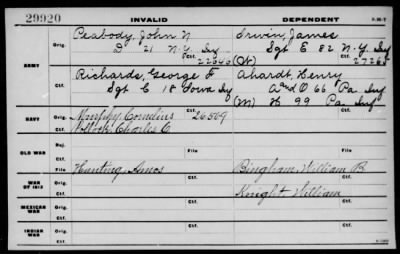 29920 INVALID DEPENDENT
Peabody, John N Irwin, James
ARMY Orig. D 21 N.Y. Inf Sgt E 82 N.Y. Inf
Ctf. 22646 (Ct) 27263
Richards, George F Ahardt, Henry
Orig. Sgt C 18 Iowa Inf A and D 66 Pa Inf
Ctf. (M) H 99 Pa Inf
NAVY Orig. Murphy, Cornelius 26509
Ctf. Pollock, Charles C.
OLD WAR Rej. File File
Ctf.
WAR OF 1812 Orig. Hunting, Amos Bingham, William B.
Ctf. Knight William
MEXICAN WAR Orig.
Ctf.
INDIAN WAR Orig.
Ctf.